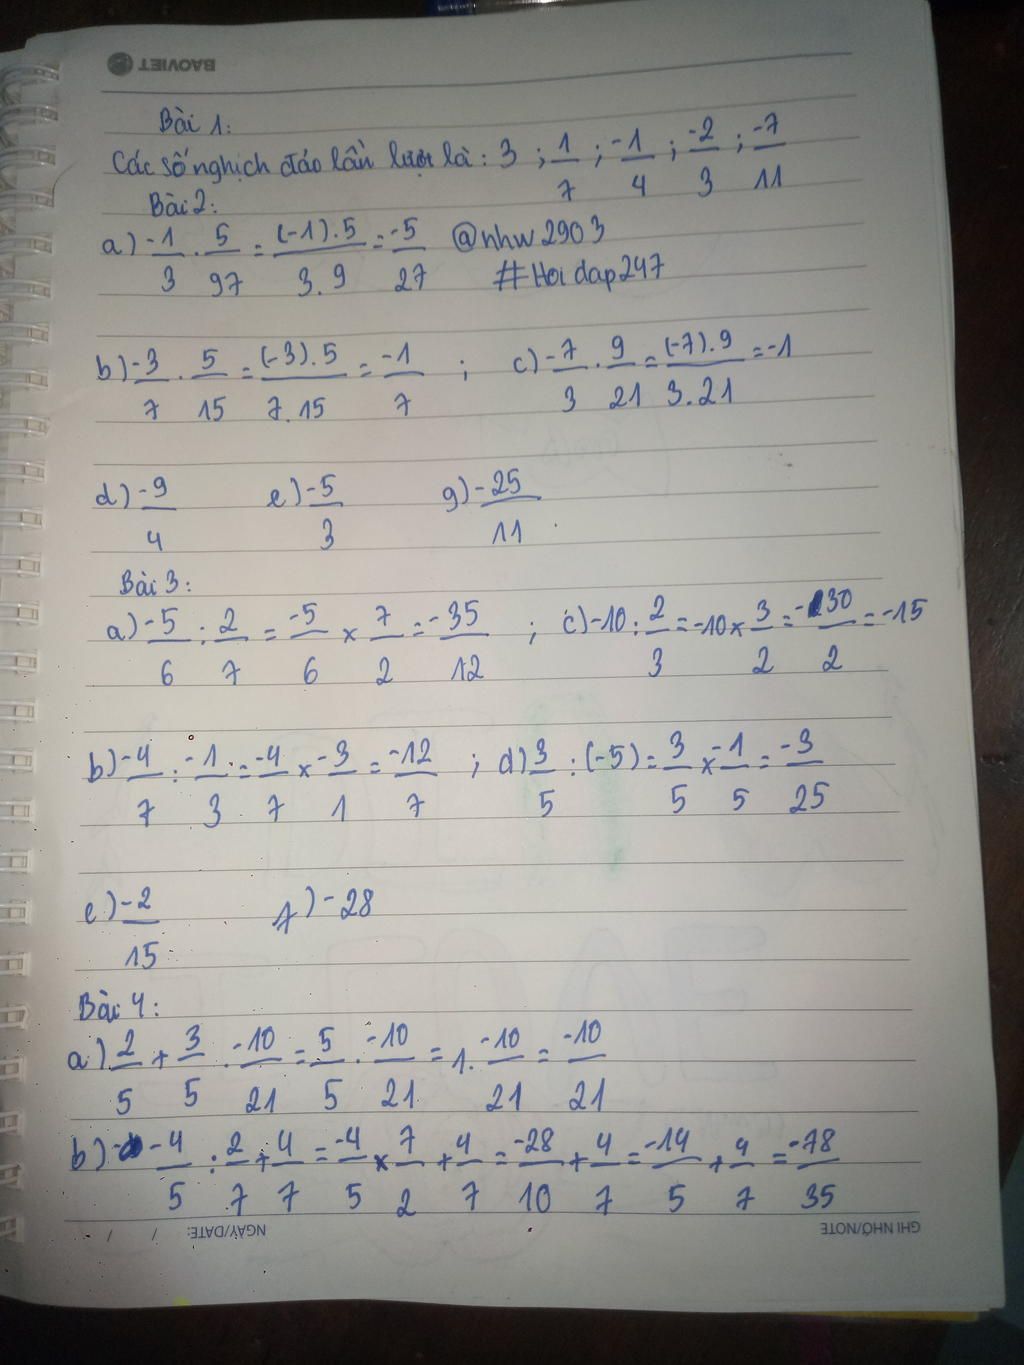 BAOVIET
Bài 1:
Các số nghịch đảo lần lượt là: 3 ; 1/7 ; -1/4 ; -2/3 ; -7/11
Bài 2:
a) -1/3 . 5/97 = (-1).5/3.9 = -5/27 @nhw2903
#Hoidap247
b) -3/7 . 5/15 = (-3).5/7.15 = -1/7 ; c) -7/3 . 9/21 = (-7).9/3.21 = -1
d) -9/4 e) -5/3 g) -25/11
Bài 3:
a) -5/6 : 2/7 = -5/6 x 7/2 = -35/12 ; c) -10 : 2/3 = -10 x 3/2 = -30/2 = -15
b) -4/7 : -1/3 = -4/7 x -3/1 = -12/7 ; d) 3/5 : (-5) = 3/5 x -1/5 = -3/25
e) -2/15 f) -28
Bài 4:
a) 2/5 + 3/5 . -10/21 = 5/5 . -10/21 = 1 . -10/21 = -10/21
b) -4/5 : 2/7 + 4/7 = -4/5 x 7/2 + 4/7 = -28/10 + 4/7 = -14/5 + 4/7 = -78/35
NGÀY/DATE: / / GHI NHỚ/NOTE